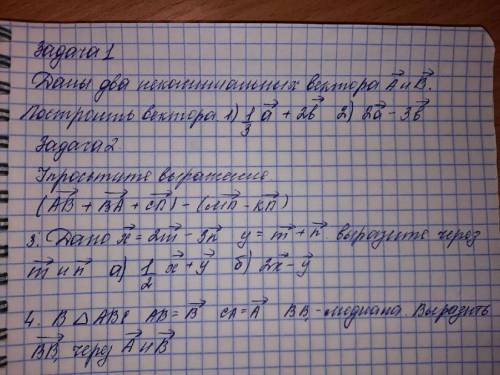 Задача 1
Даны два неколлинеальных вектора A⃗ и B⃗.
Построить вектора 1) 1/3 a⃗ + 2b⃗ 2) 2a⃗ - 3b⃗
Задача 2
Упростите выражение
(AB⃗ + BA⃗ + CП⃗) - (MП⃗ - KП⃗)
3. Дано x⃗ = 2m⃗ - 3n⃗ y = m⃗ + n⃗. выразите через
m⃗ и n⃗ а) 1/2 x⃗ + y⃗ б) 2x⃗ - y⃗
4. В △ ABC AB = B⃗ CA = A⃗ BB₁ - медиана. Выразить
BB₁⃗ через A⃗ и B⃗